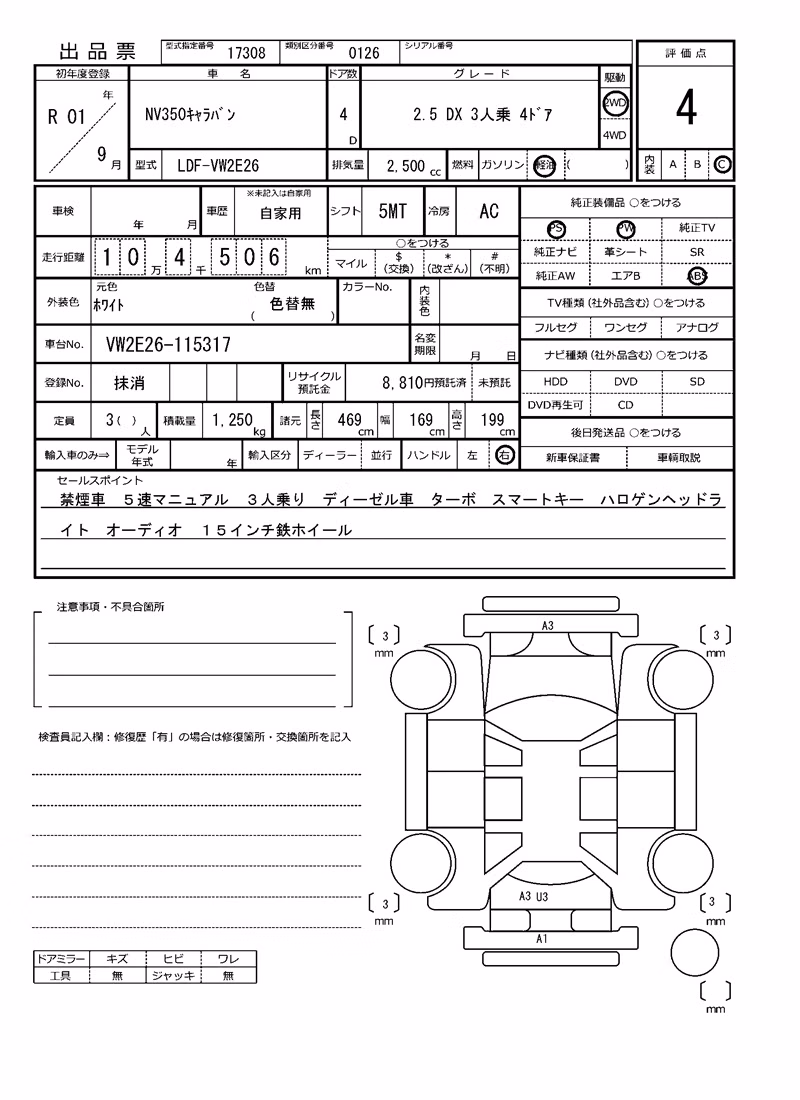 出品票
型式指定番号 17308 類別区分番号 0126 シリアル番号
評価点
初年度登録 車名 ドア数 グレード 駆動
R 01 年 9 月
NV350ｷｬﾗﾊﾞﾝ
4 D
2.5 DX 3人乗 4ﾄﾞｱ
2WD
4WD
4
型式 LDF-VW2E26 排気量 2,500 cc 燃料 ガソリン 軽油 ( )
内装 A B C
車検 年 月 車歴 ※未記入は自家用 自家用 シフト 5MT 冷房 AC
純正装備品 ○をつける
PS PW 純正TV
純正ナビ 革シート SR
純正AW エアB ABS
走行距離 10万4千506 km
○をつける
マイル $(交換) *(改ざん) #(不明)
外装色 元色 ﾎﾜｲﾄ 色替 ( 色替無 ) カラーNo. 内装色
TV種類（社外品含む）○をつける
フルセグ ワンセグ アナログ
車台No. VW2E26-115317 名変期限 月 日
ナビ種類（社外品含む）○をつける
HDD DVD SD
DVD再生可 CD
登録No. 抹消 リサイクル預託金 8,810円預託済 未預託
定員 3( )人 積載量 1,250 kg 諸元 長さ 469 cm 幅 169 cm 高さ 199 cm
後日発送品 ○をつける
新車保証書 車輌取説
輸入車のみ⇒ モデル年式 年 輸入区分 ディーラー 並行 ハンドル 左 右
セールスポイント
禁煙車　５速マニュアル　３人乗り　ディーゼル車　ターボ　スマートキー　ハロゲンヘッドラ
イト　オーディオ　１５インチ鉄ホイール
注意事項・不具合箇所
検査員記入欄：修復歴「有」の場合は修復箇所・交換箇所を記入
ドアミラー キズ ヒビ ワレ
工具 無 ジャッキ 無
A3
3 mm
3 mm
A3 U3
3 mm
3 mm
A1
mm